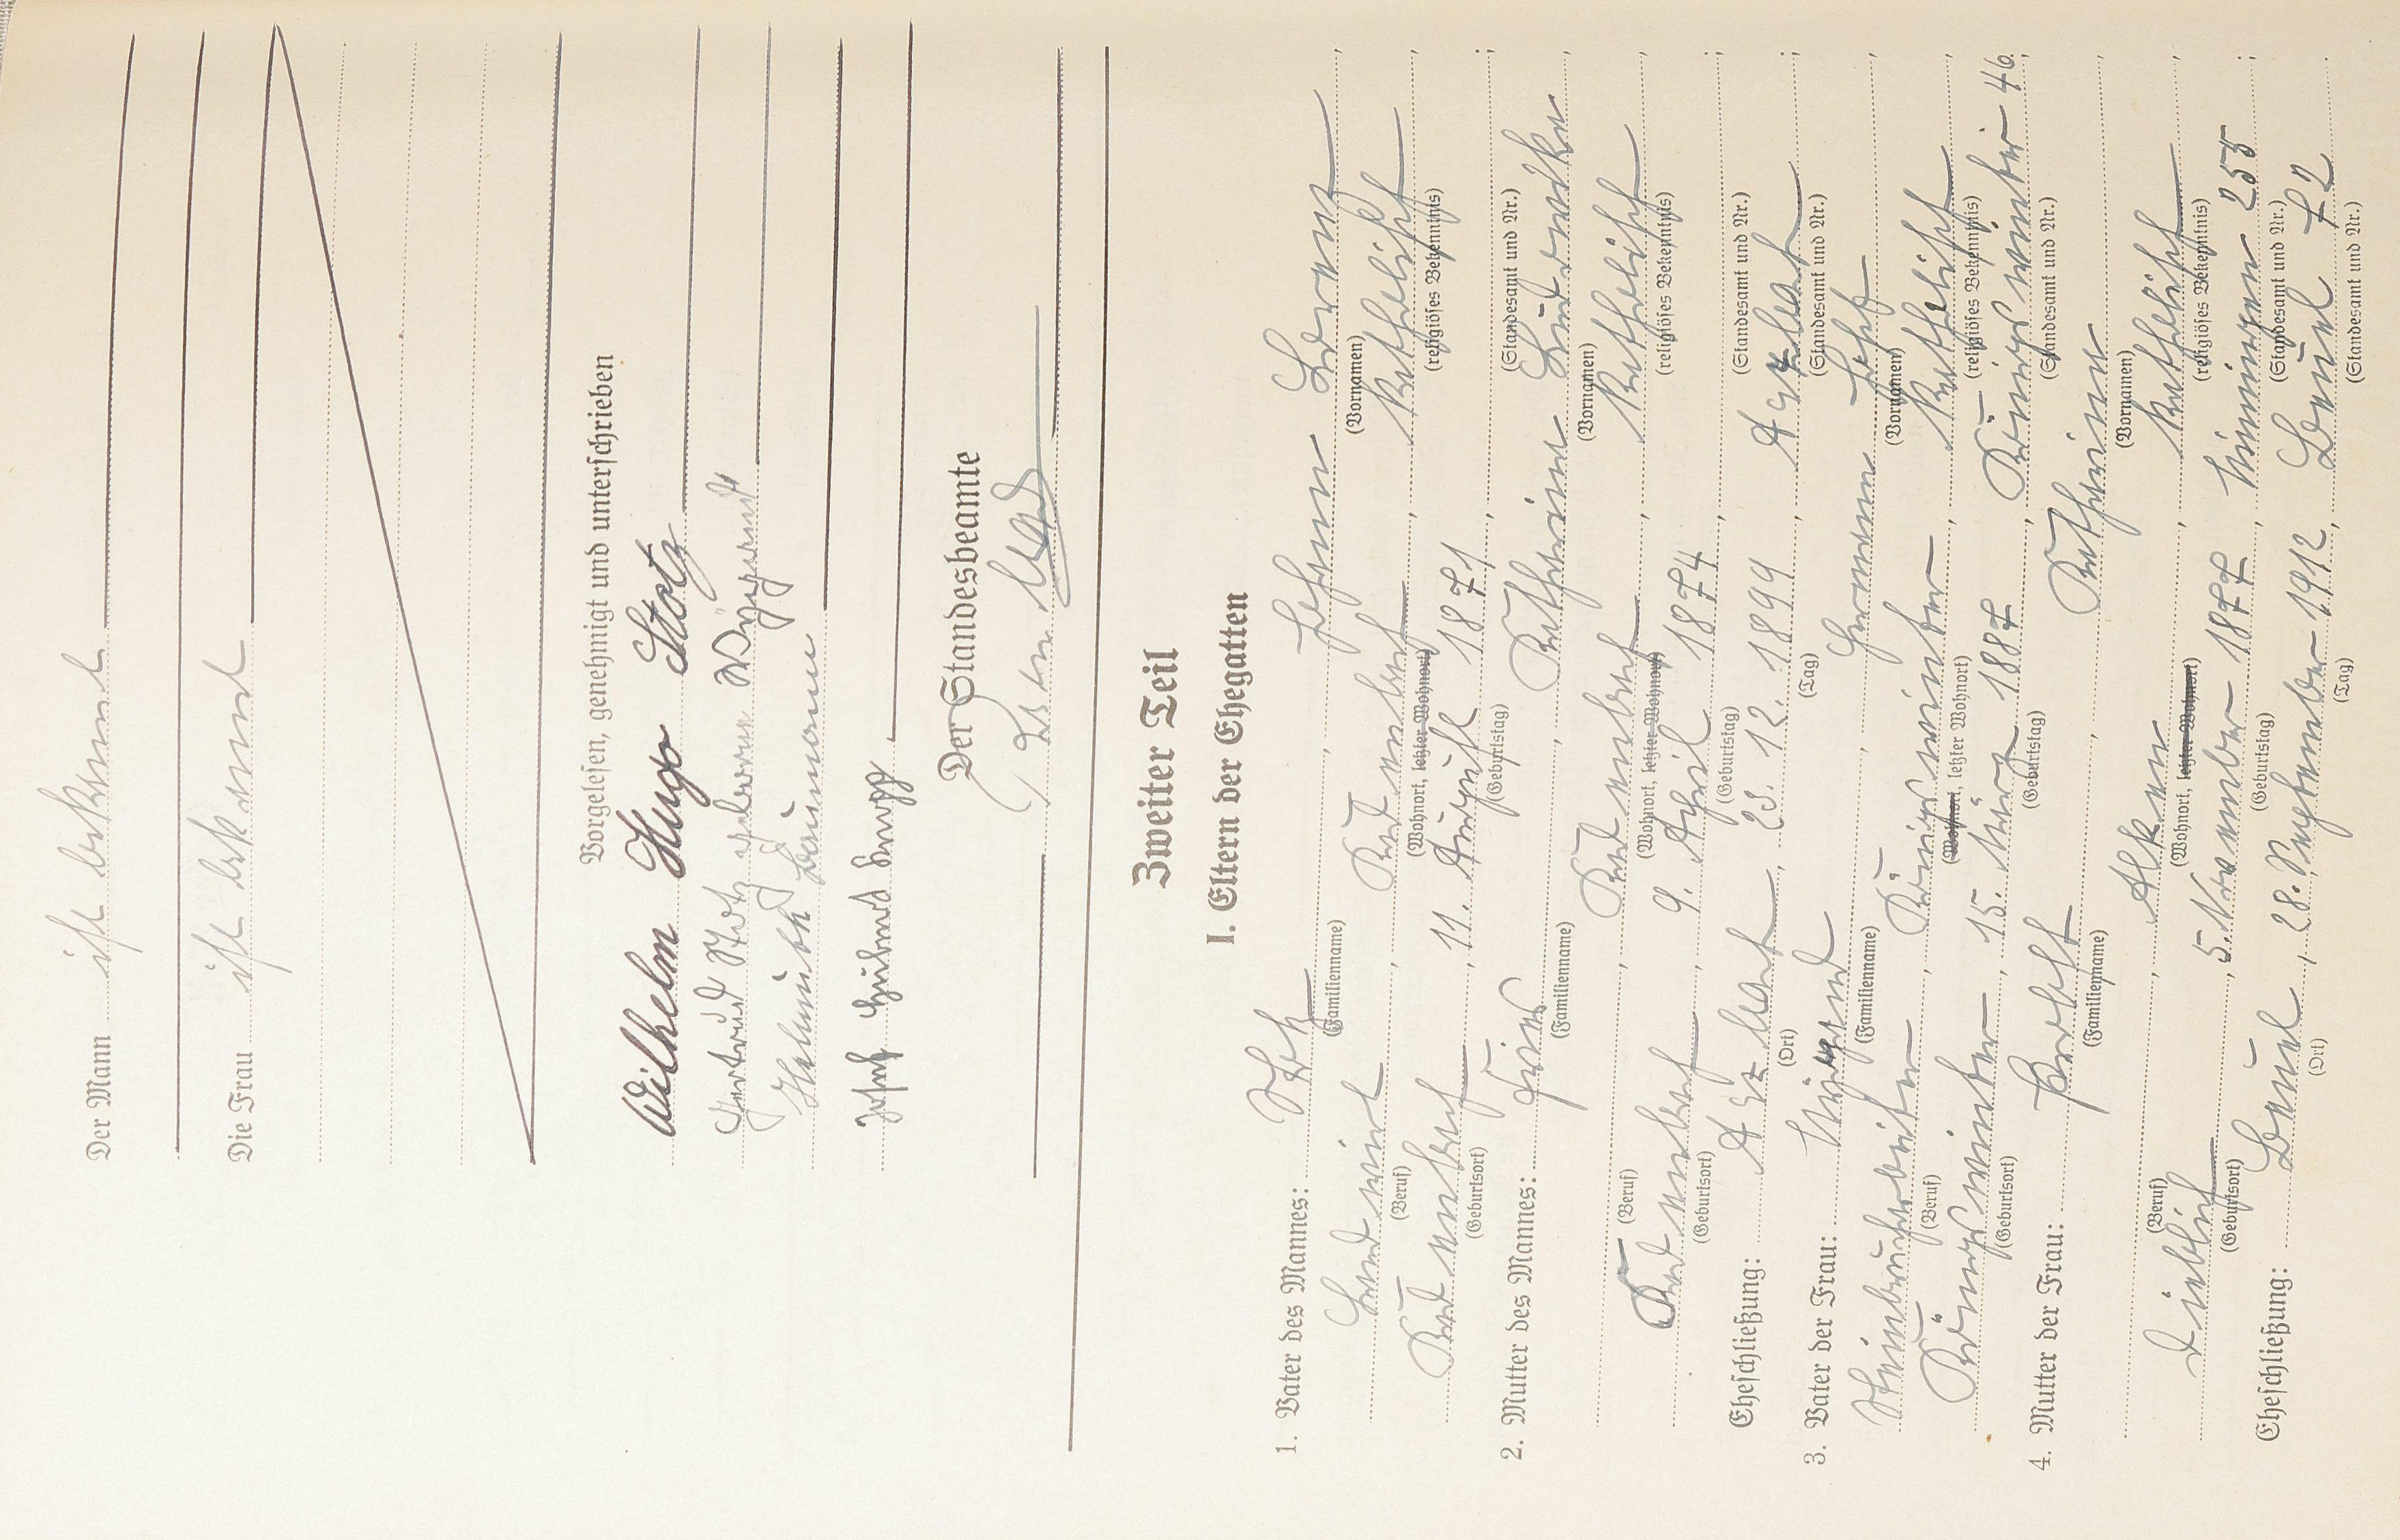 Der Mann ist bekannt
Die Frau ist bekannt
Vorgelesen, genehmigt und unterschrieben
Wilhelm Hugo Stotz
Gertrud Stotz geborene Wiegand
Helmuth Baumann
Josef Hubert
Der Standesbeamte
Zweiter Teil
I. Eltern der Ehegatten
1. Vater des Mannes: Stotz Johann Lorenz,
(Familienname) (Vornamen)
Landwirt, katholisch,
(Beruf) (Wohnort, letzter Wohnort) (religiöses Bekenntnis)
11. August 1871, ;
(Geburtsort) (Geburtstag) (Standesamt und Nr.)
2. Mutter des Mannes: Katharina
(Familienname) (Vornamen)
katholisch,
(Beruf) (Wohnort, letzter Wohnort) (religiöses Bekenntnis)
9. April 1874, ;
(Geburtsort) (Geburtstag) (Standesamt und Nr.)
Eheschließung: 23. 12. 1899, ;
(Ort) (Tag) (Standesamt und Nr.)
3. Vater der Frau: Wiegand Hermann Josef,
(Familienname) (Vornamen)
Steinbrucharbeiter, Königswinter, katholisch,
(Beruf) (Wohnort, letzter Wohnort) (religiöses Bekenntnis)
Königswinter, 15. März 1887, Königswinter 46;
(Geburtsort) (Geburtstag) (Standesamt und Nr.)
4. Mutter der Frau: Katharina,
(Familienname) (Vornamen)
Alken, katholisch,
(Beruf) (Wohnort, letzter Wohnort) (religiöses Bekenntnis)
Dieblich, 5. November 1877, 255;
(Geburtsort) (Geburtstag) (Standesamt und Nr.)
Eheschließung: Beuel, 28. September 1912, Beuel 72.
(Ort) (Tag) (Standesamt und Nr.)